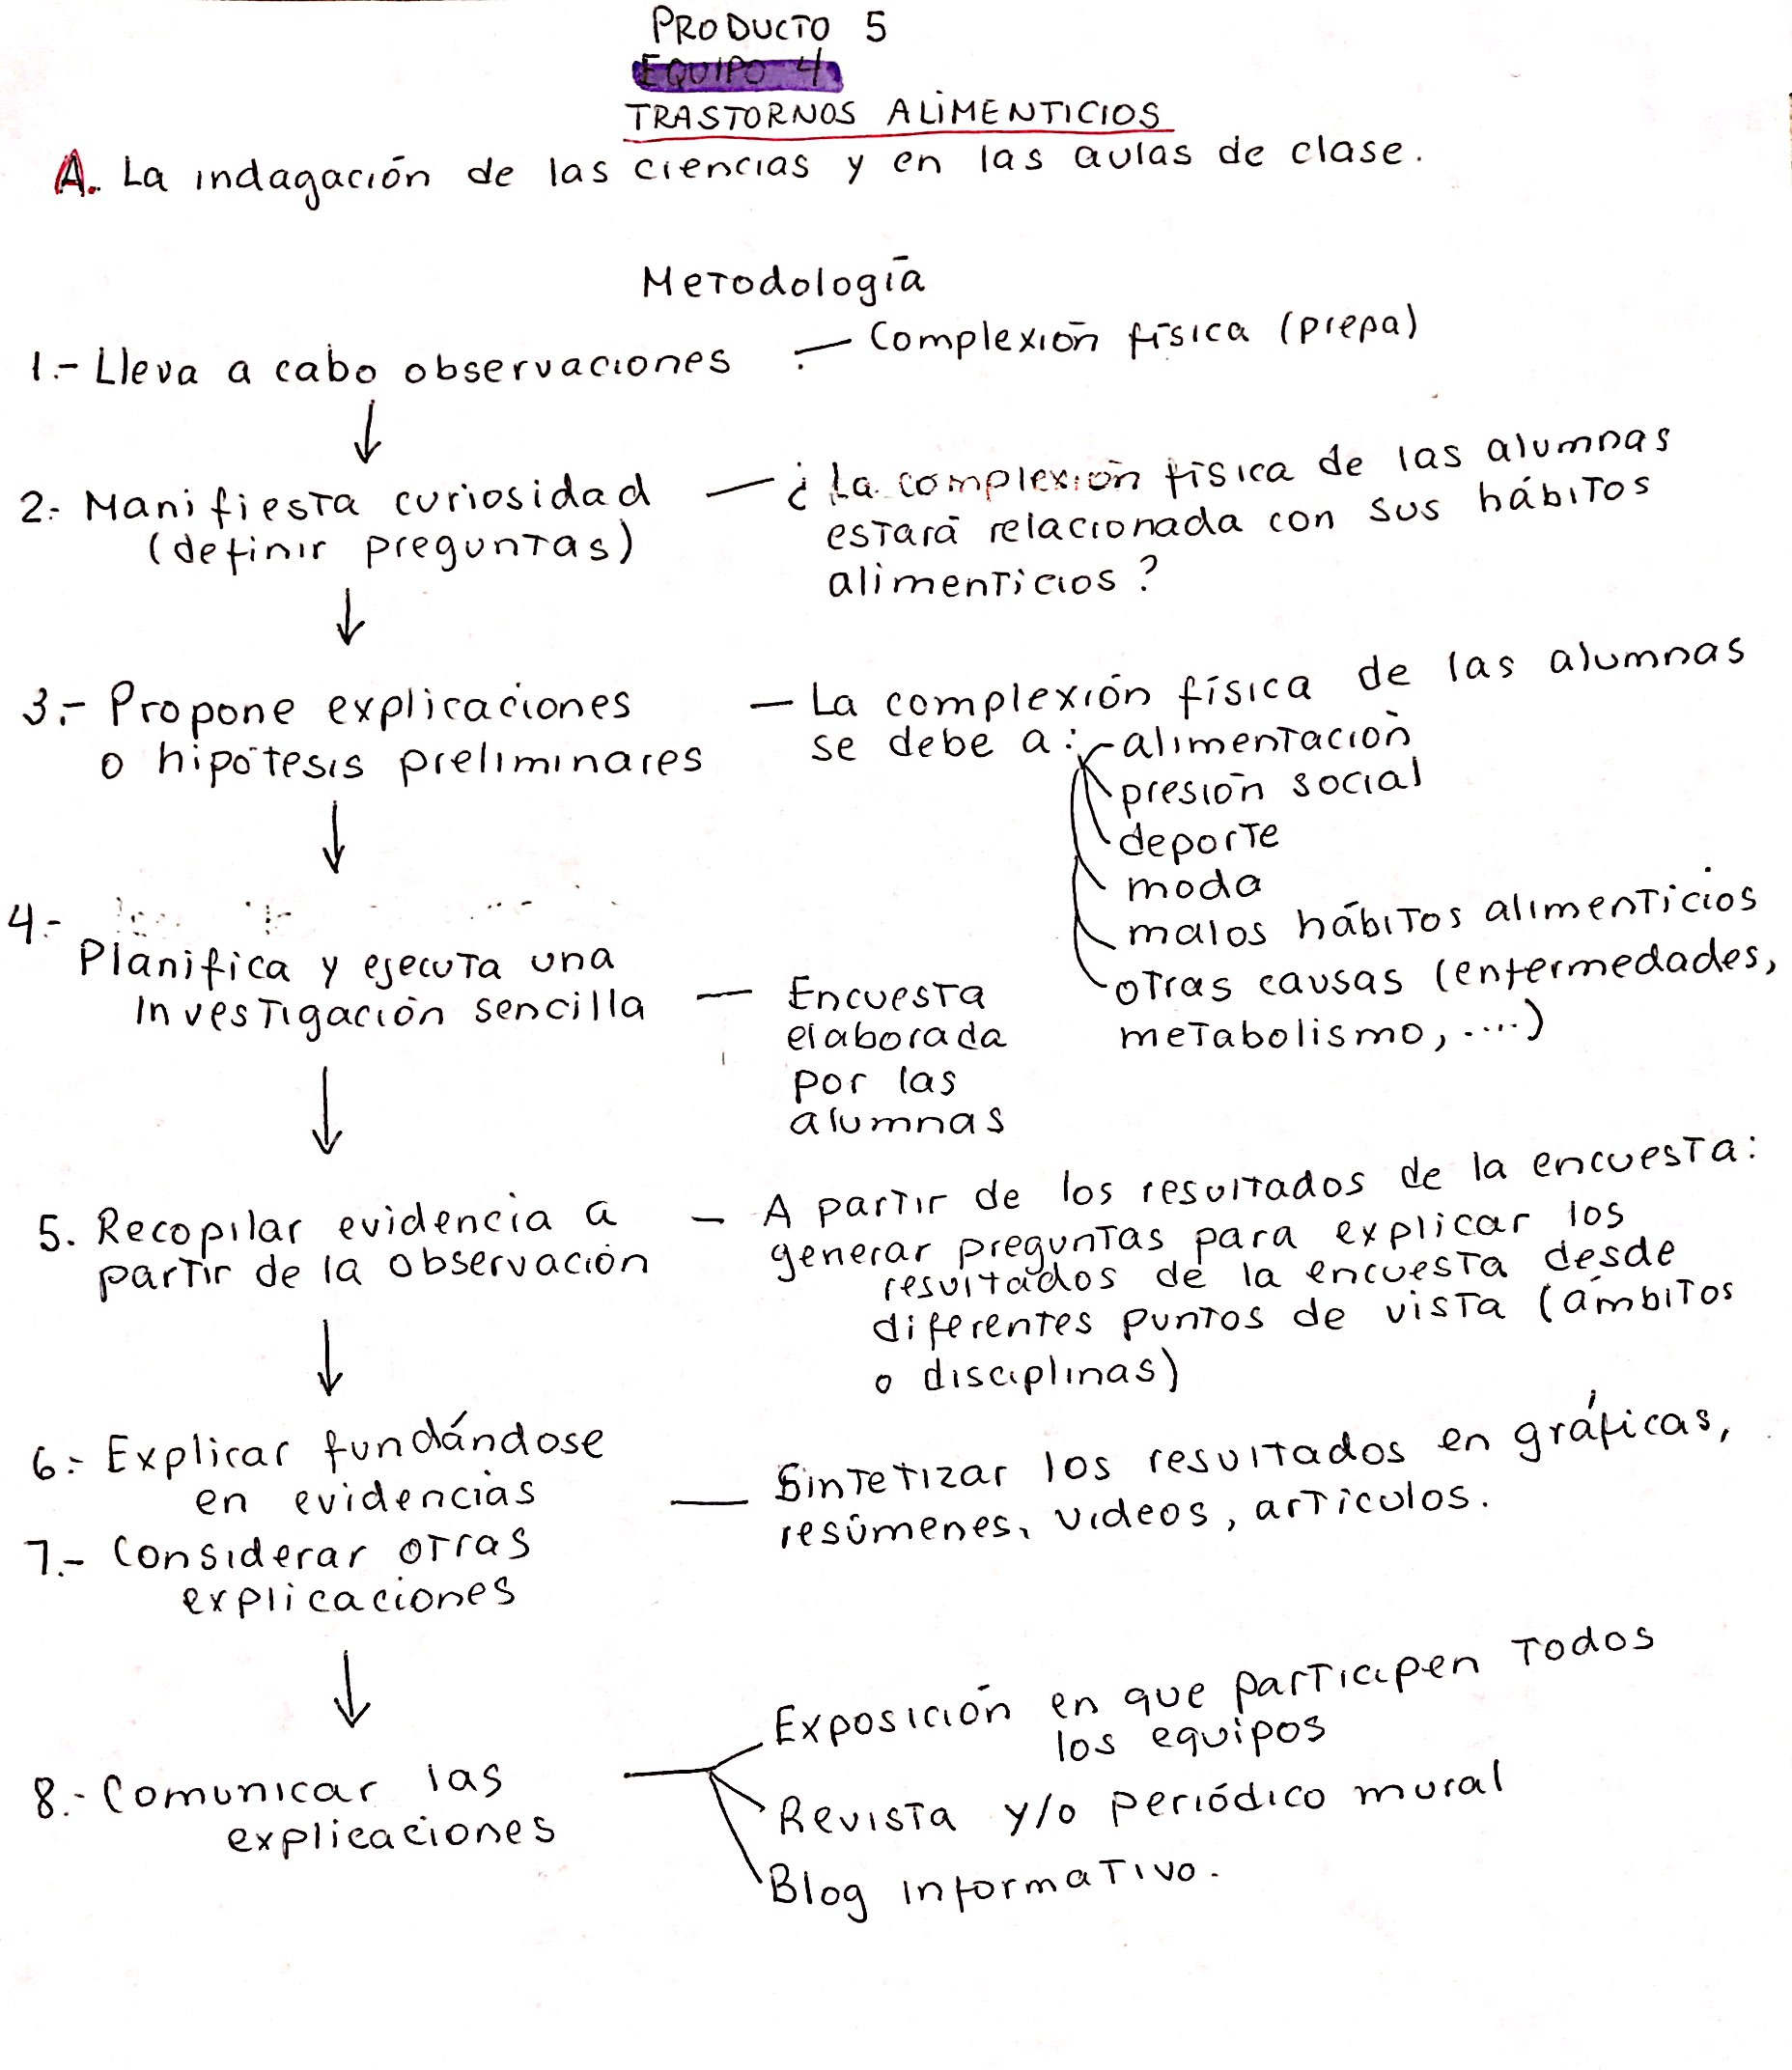 PRODUCTO 5
EQUIPO 4
TRASTORNOS ALIMENTICIOS
A. La indagación de las ciencias y en las aulas de clase.
Metodología
1.- Lleva a cabo observaciones — Complexión física (prepa)
2.- Manifiesta curiosidad — ¿La complexión física de las alumnas
(definir preguntas) estará relacionada con sus hábitos
alimenticios?
3.- Propone explicaciones — La complexión física de las alumnas
o hipótesis preliminares se debe a: alimentación
presión social
deporte
moda
malos hábitos alimenticios
otras causas (enfermedades,
metabolismo, ....)
4.-
Planifica y ejecuta una
investigación sencilla — Encuesta
elaborada
por las
alumnas
5. Recopilar evidencia a — A partir de los resultados de la encuesta:
partir de la observación generar preguntas para explicar los
resultados de la encuesta desde
diferentes puntos de vista (ámbitos
o disciplinas)
6.- Explicar fundándose
en evidencias — Sintetizar los resultados en gráficas,
resúmenes, videos, artículos.
7.- Considerar otras
explicaciones
8.- Comunicar las
explicaciones
Exposición en que participen todos
los equipos
Revista y/o periódico mural
Blog informativo.